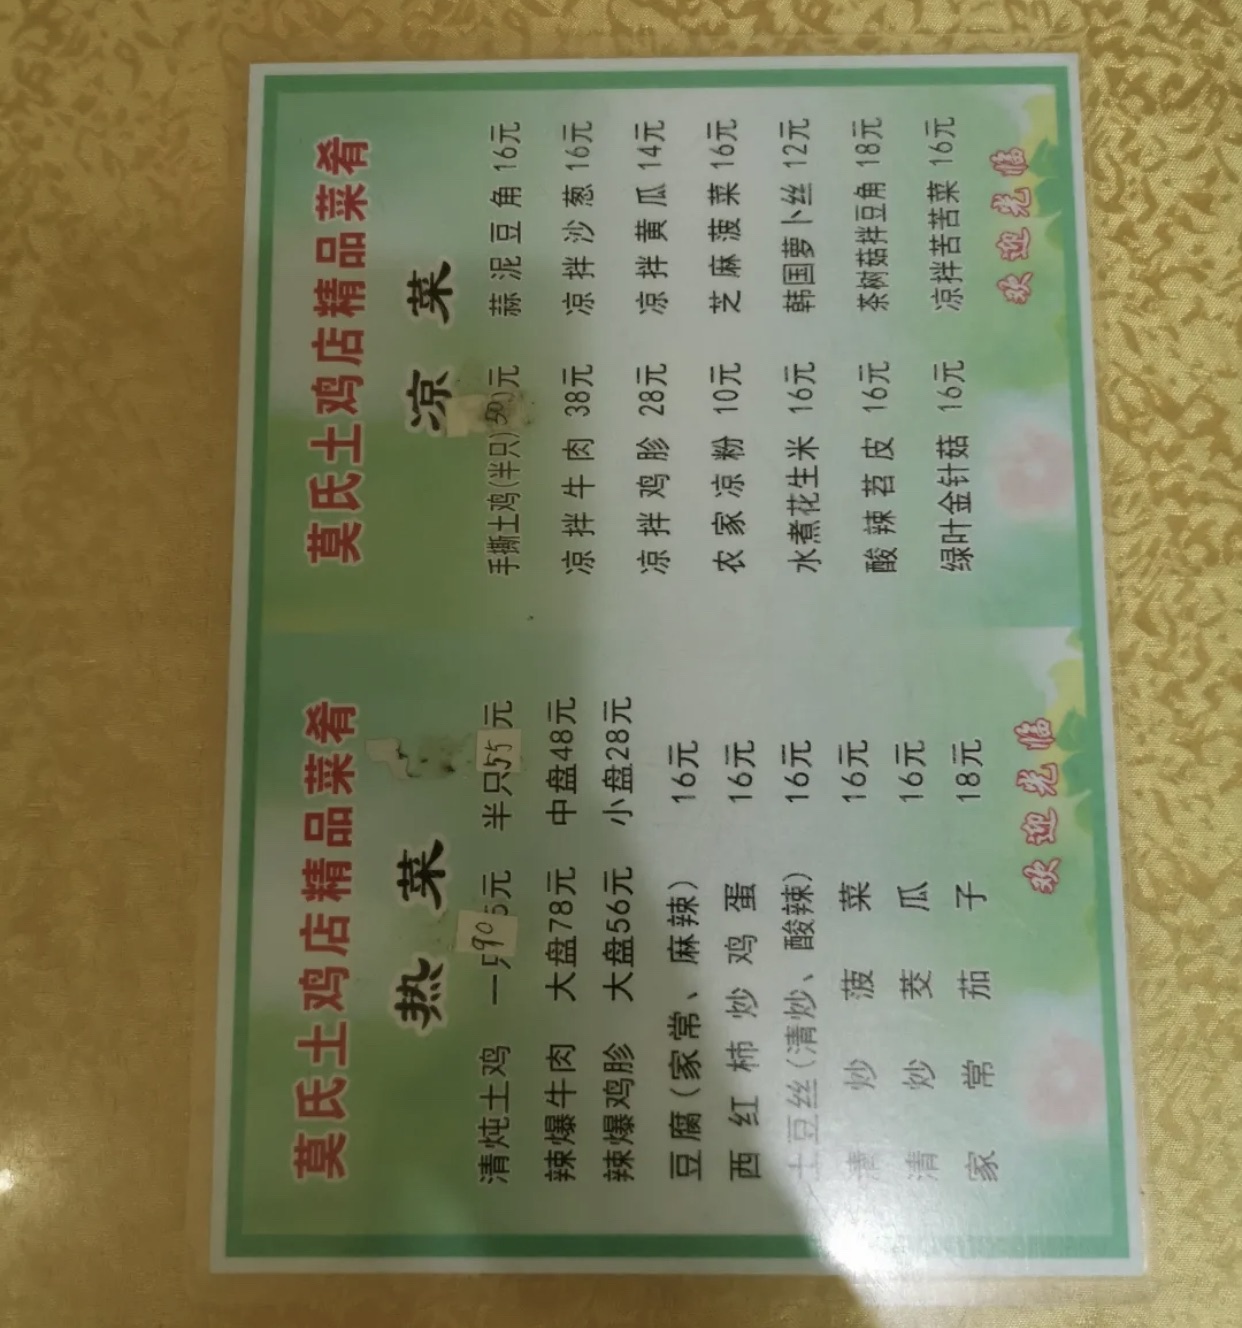 莫氏土鸡店精品菜肴
热菜
清炖土鸡 一只90元 半只55元
辣爆牛肉 大盘78元 中盘48元
辣爆鸡胗 大盘56元 小盘28元
豆腐(家常、麻辣) 16元
西红柿炒鸡蛋 16元
土豆丝(清炒、酸辣) 16元
清炒菠菜 16元
清炒茭瓜 16元
家常茄子 18元
欢迎光临
莫氏土鸡店精品菜肴
凉菜
手撕土鸡(半只) 元 蒜泥豆角 16元
凉拌牛肉 38元 凉拌沙葱 16元
凉拌鸡胗 28元 凉拌黄瓜 14元
农家凉粉 10元 芝麻菠菜 16元
水煮花生米 16元 韩国萝卜丝 12元
酸辣苕皮 16元 茶树菇拌豆角 18元
绿叶金针菇 16元 凉拌苦苦菜 16元
欢迎光临